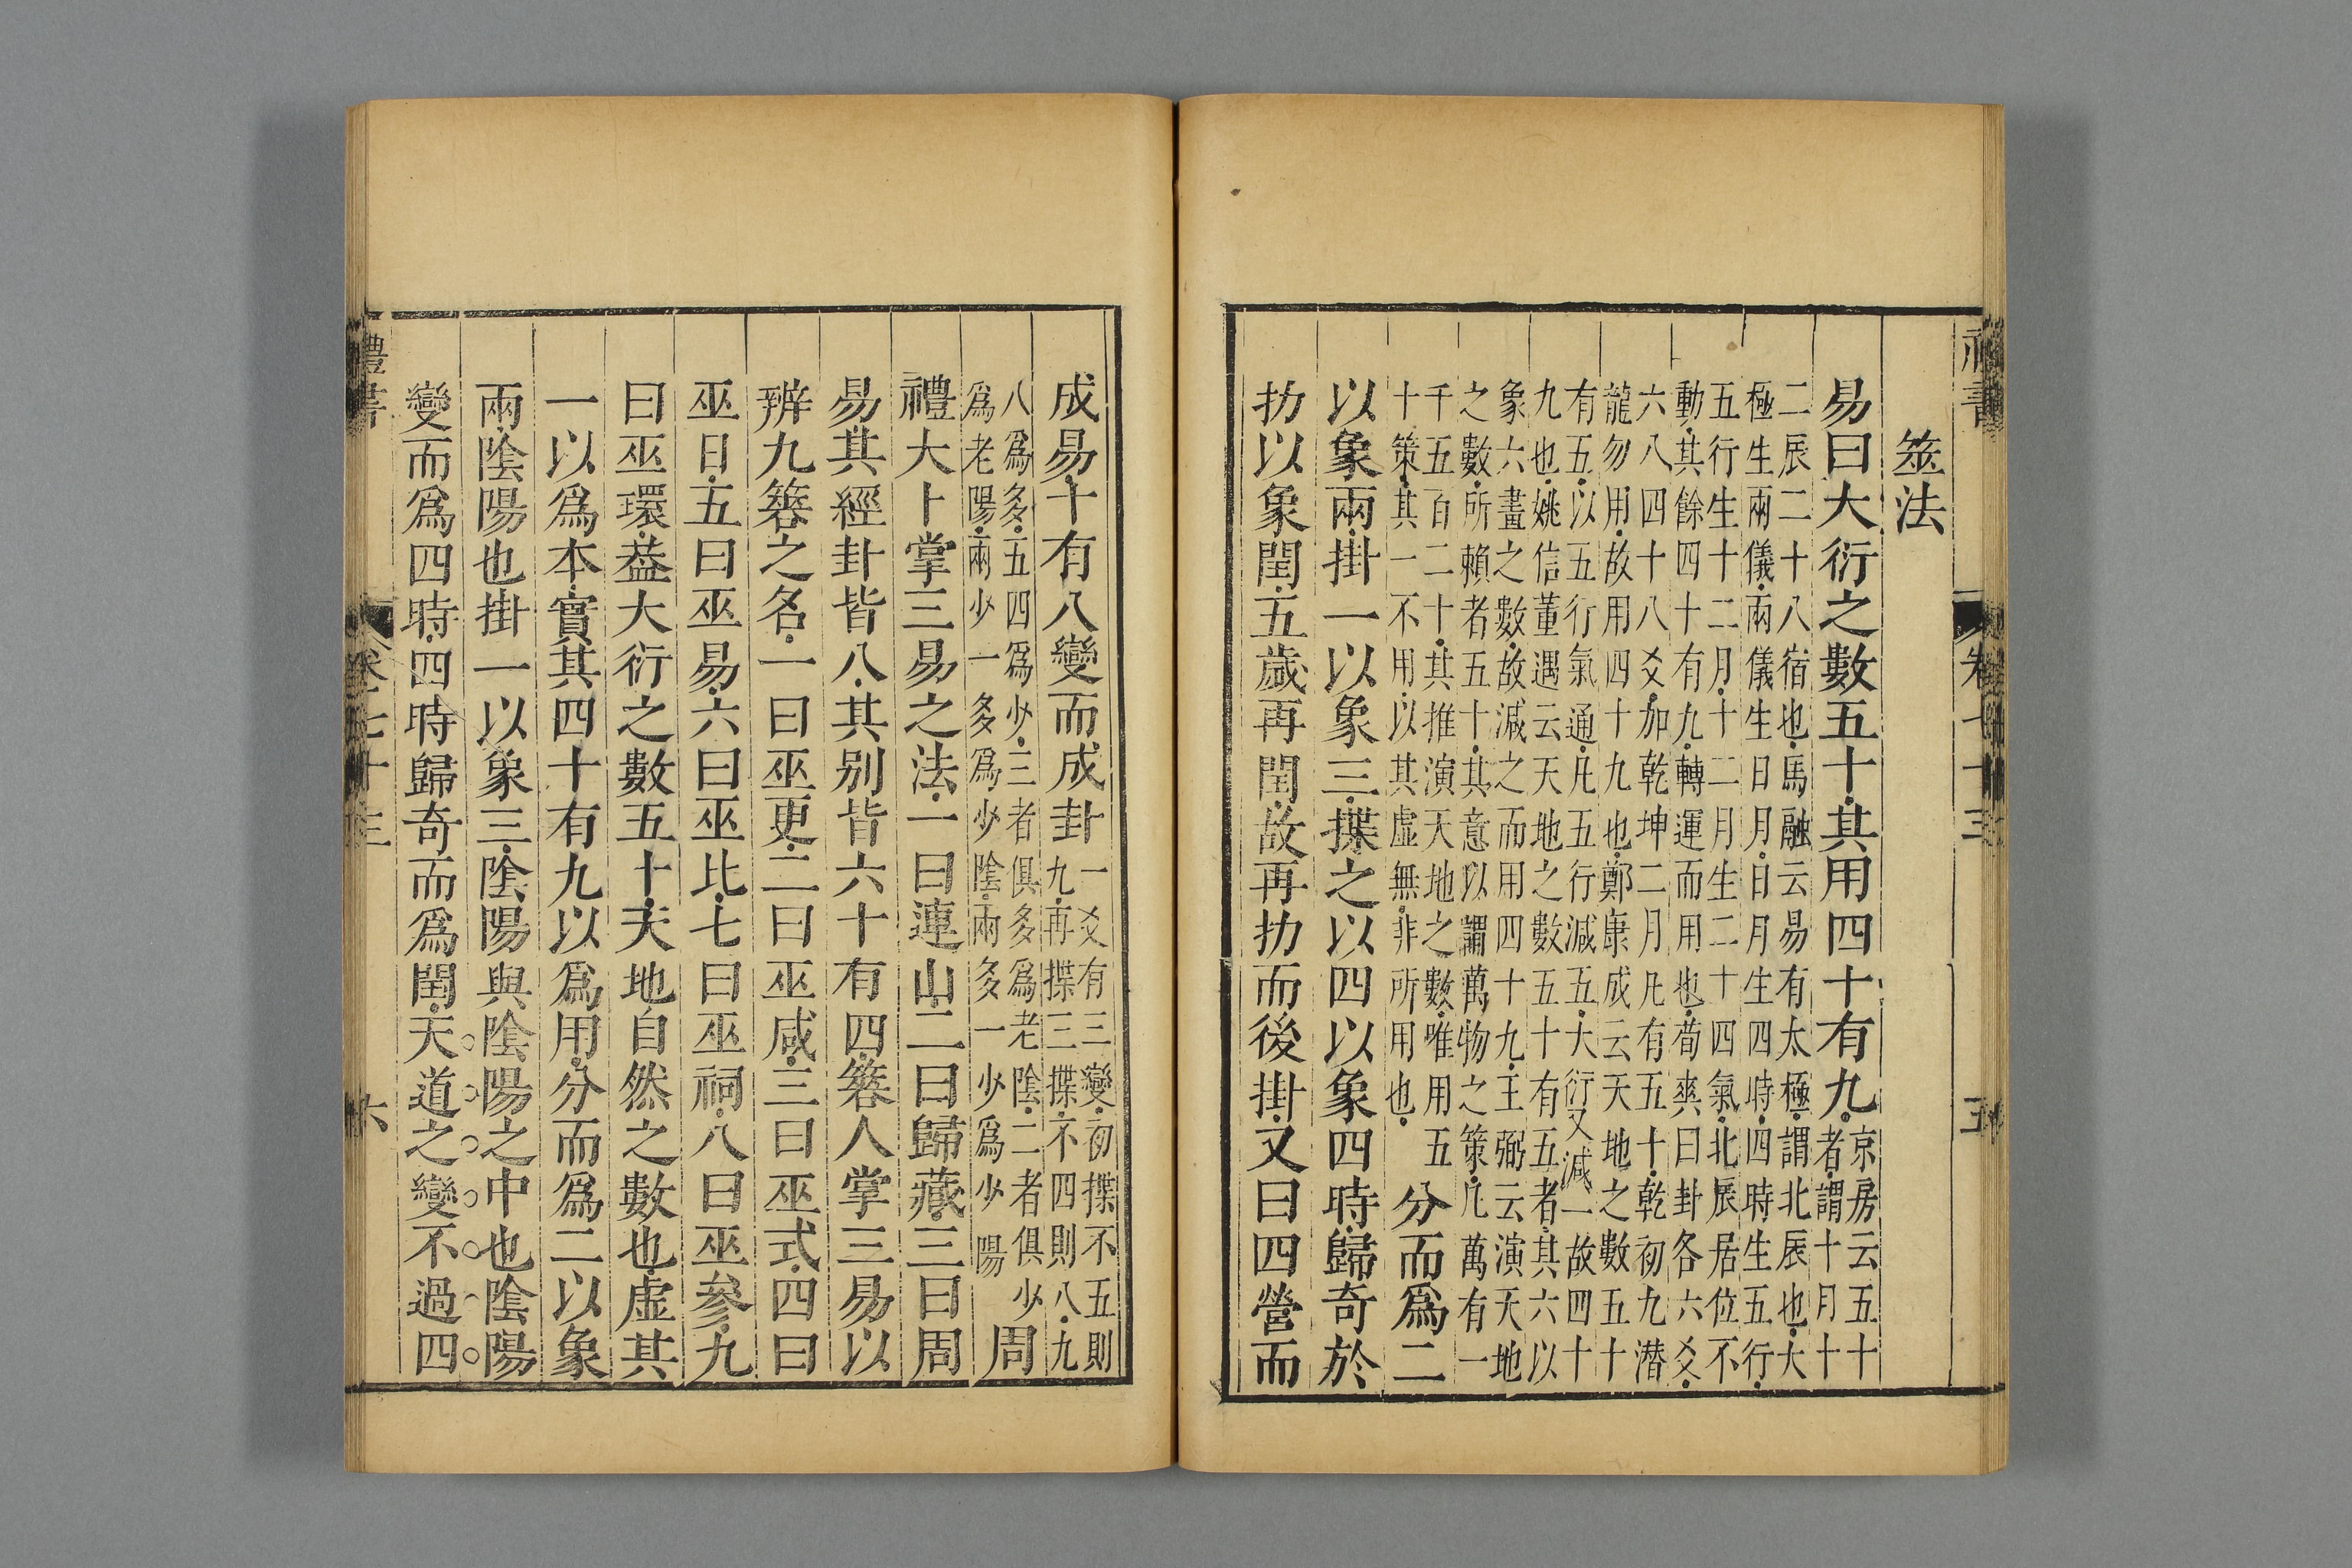 書 卷七十三 五
筮法
易曰大衍之數五十其用四十有九京房云五十
者謂十月十
二辰二十八宿也馬融云易有太極謂北辰也大
極生兩儀兩儀生日月日月生四時四時生五行
五行生十二月十二月生二十四氣北辰居位不
動其餘四十有九轉運而用也荀爽曰卦各六爻
六八四十八爻加乾坤二月凡有五十乾初九潛
龍勿用故用四十九也鄭康成云天地之數五十
有五以五行氣通凡五行減五大衍又減一故四十
九也姚信董遇云天地之數五十有五者其六以
象六畫之數故減之而用四十九王弼云演天地
之數所賴者五十其意以謂萬物之策凡萬有一
千五百二十其推演天地之數唯用五
十策其一不用以其虛無非所用也分而爲二
以象兩掛一以象三揲之以四以象四時歸奇於
扐以象閏五歲再閏故再扐而後掛又曰四營而
成易十有八變而成卦一爻有三變初揲不五則
九再揲三揲不四則八九
八爲多五四爲少三者俱多爲老陰二者俱少
爲老陽兩少一多爲少陰兩多一少爲少陽周
禮大卜掌三易之法一曰連山二曰歸藏三曰周
易其經卦皆八其別皆六十有四簭人掌三易以
辨九簭之名一曰巫更二曰巫咸三曰巫式四曰
巫目五曰巫易六曰巫比七曰巫祠八曰巫參九
曰巫環葢大衍之數五十天地自然之數也虛其
一以爲本實其四十有九以爲用分而爲二以象
兩陰陽也掛一以象三陰陽與陰陽之中也陰陽
變而爲四時四時歸奇而爲閏天道之變不過四
禮書 卷七十三 六